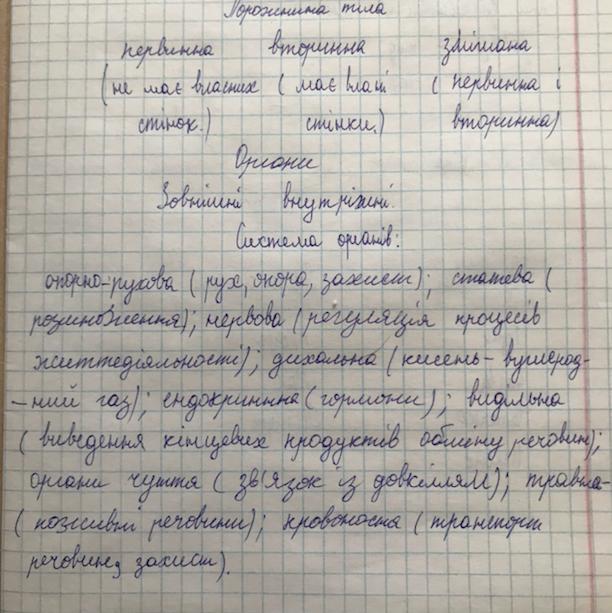 Порожнина тіла
первинна вторинна змішана
(не має власних (має власні (первинна і
стінок.) стінки.) вторинна)
Органи
Зовнішні внутрішні.
Система органів:
опорно-рухова (рух, опора, захист); статева (
розмноження); нервова (регуляція процесів
життєдіяльності); дихальна (кисень - вуглерод-
-ний газ); ендокринна (гормони); видільна
(виведення кінцевих продуктів обміну речовин);
органи чуття (зв'язок із довкіллям); травна-
(поживні речовини); кровоносна (транспорт
речовин, захист).